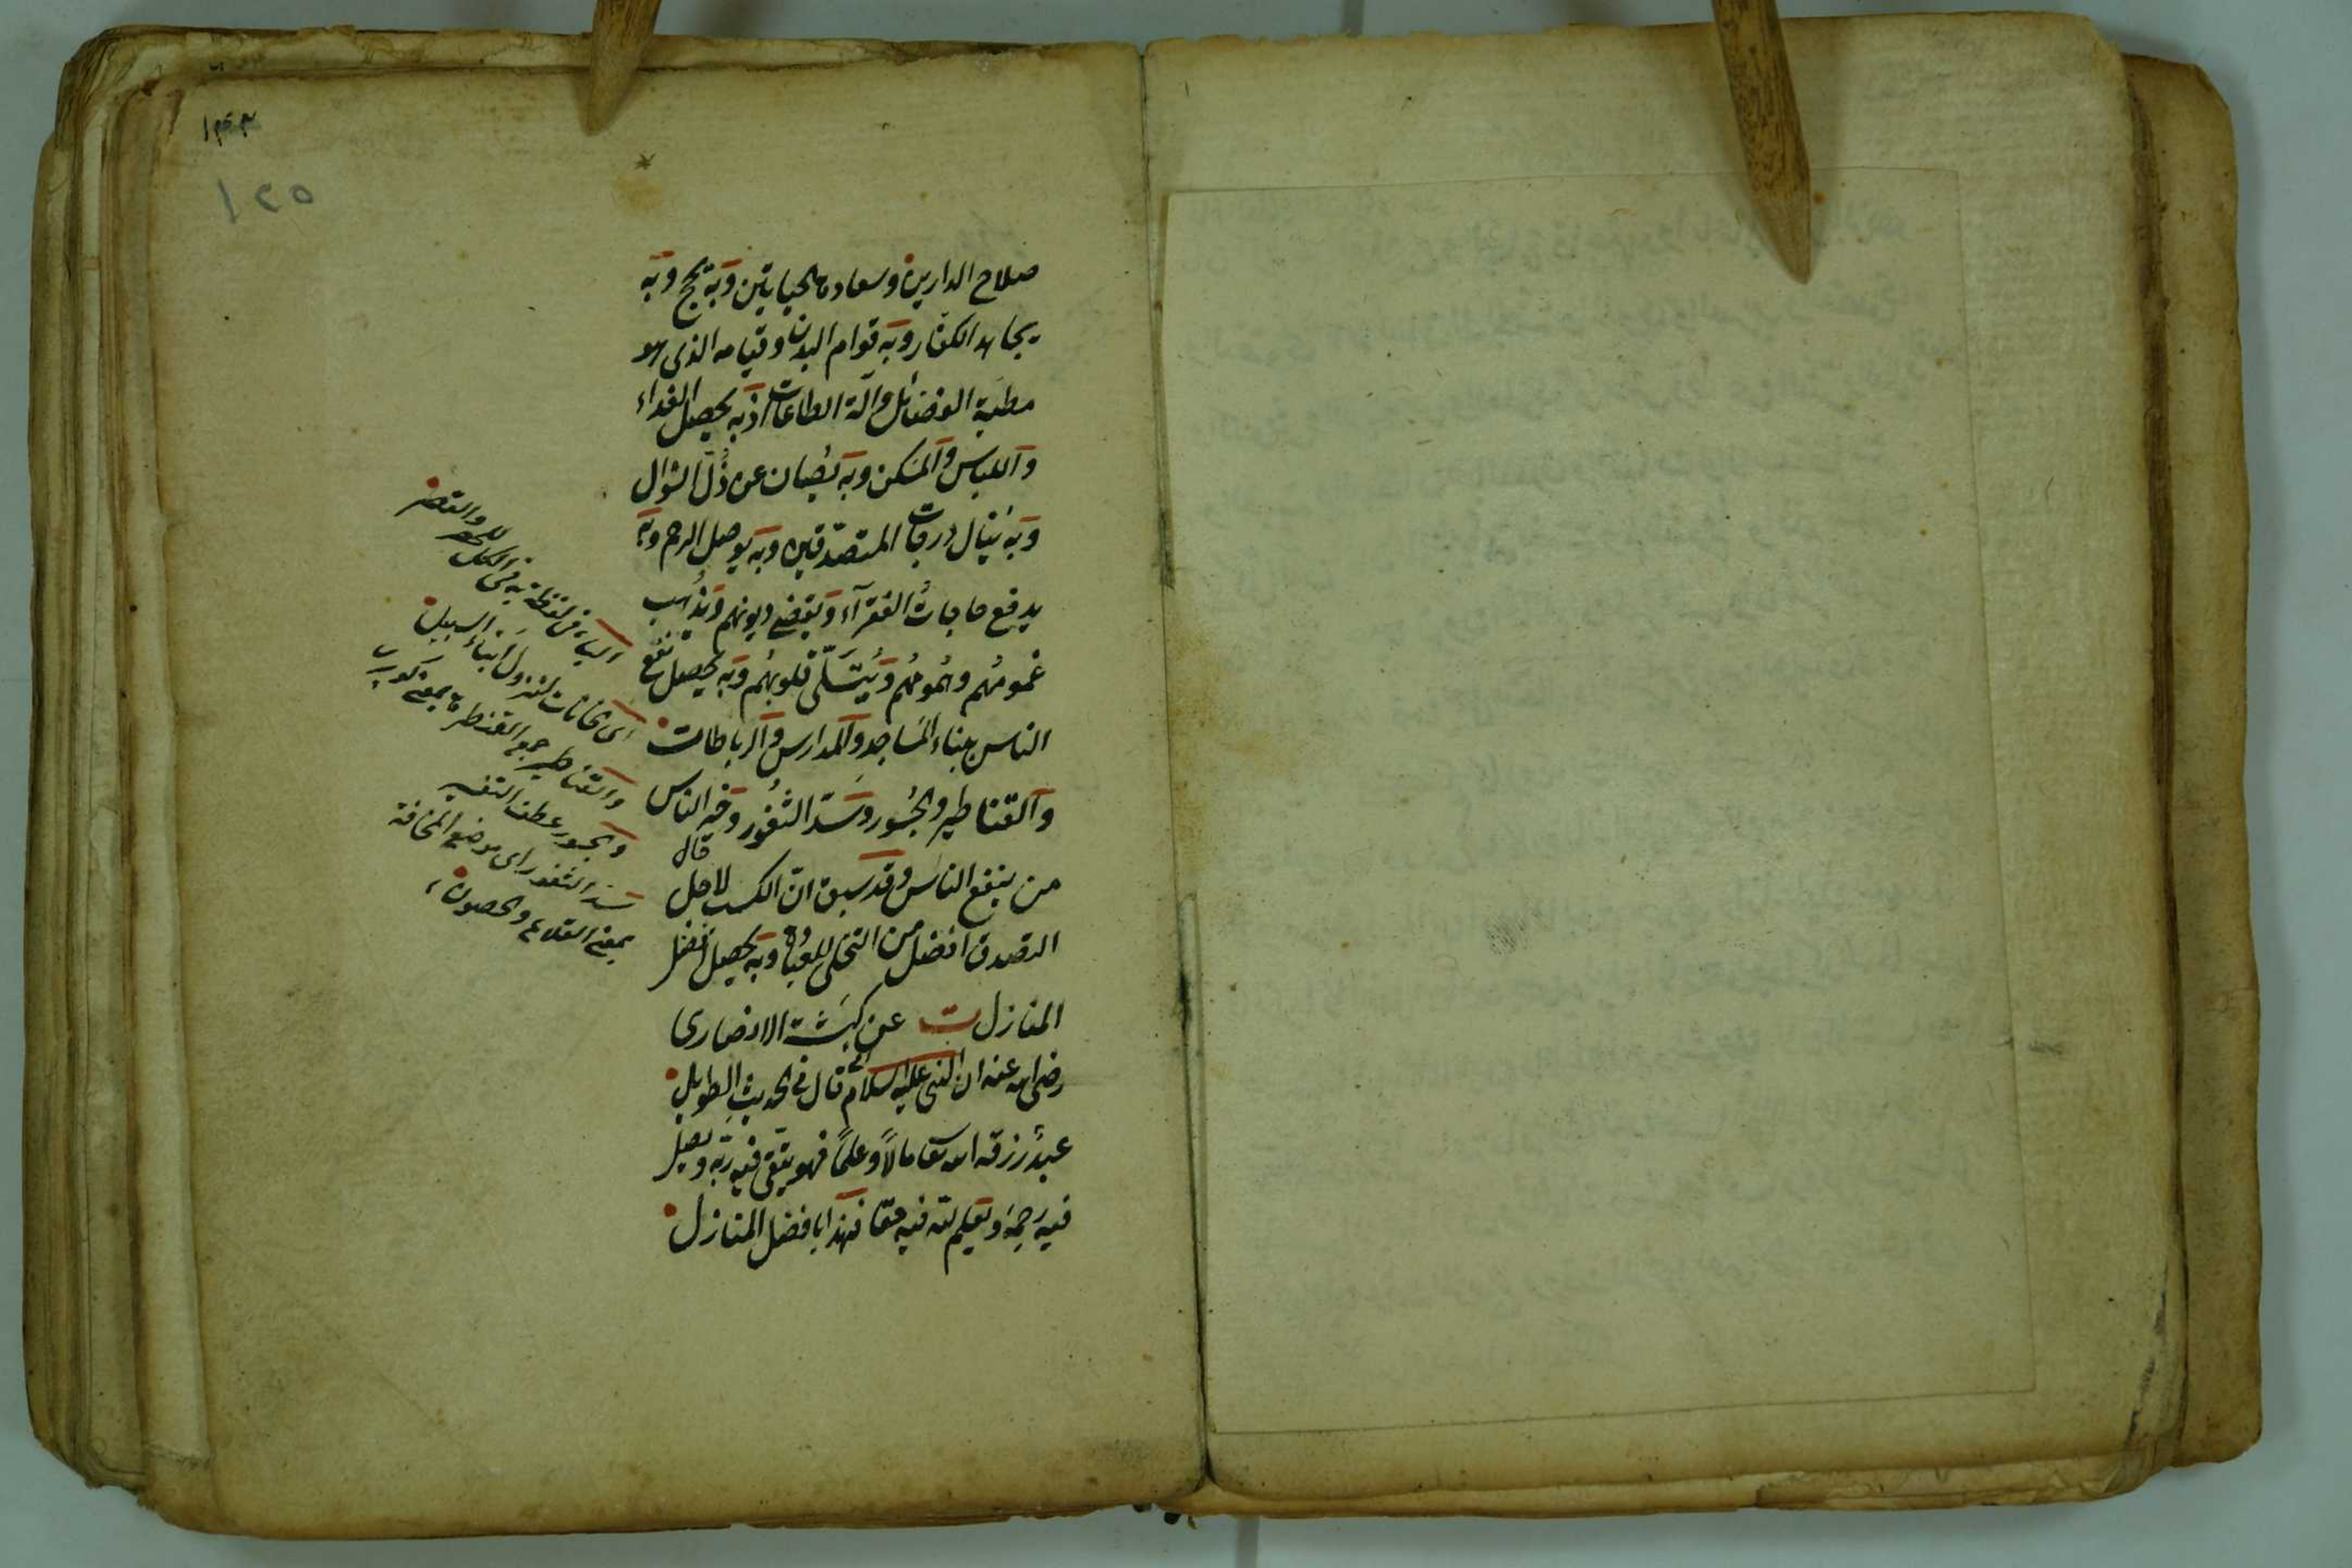 ١٤٣
١٢٥
صلاح الدارين وسعادة الحياتين وبه يحج وبه
يجاهد الكفار وبه قوام البدن وقيامه الذى هو
مطية الفضائل وآلة الطاعات اذ به يحصل الغداء
واللباس والمسكن وبه يصان عن ذل السؤال
وبه ينال درجات المتصدقين وبه يوصل الرحم وبه
يدفع حاجات الفقرآء ويقضى ديونهم ويذهب
غمومهم وهمومهم ويتسلى قلوبهم وبه يحصل نفع
الناس ببناء المساجد والمدارس والرباطات
والقناطير والجسور وسد الثغور وخير الناس
من ينفع الناس وقد سبق ان الكسب لاجل
قال
التصدق افضل من التخلى للعبادة وبه يحصل افضل
المنازل ت عن كبشة الانصارى
رضى الله عنه ان النبى عليه السلام قال فى الحديث الطويل
عبد رزقه الله تعا مالا وعلما فهو يتقى فيه ربه ويصل
فيه رحمه ويعلم لله فيه حقا فهذا بافضل المنازل
الباء فى لفظة به فى الكل للحصر والقصر
اى خانات لنزول ابناء السبيل
والقناطير جمع القنطرة بمعنى كوپرى
والجسور عطف التفسير
سد الثغور اى موضع المخافة
بمعنى القلاع والحصون